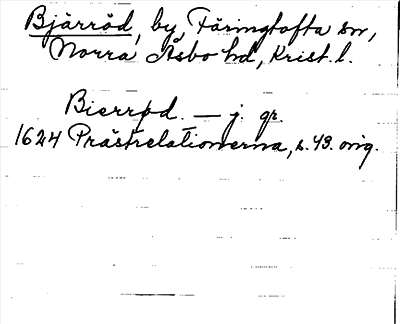 Bjärröd, by, Färingtofta sn,
Norra Åsbo hd, Krist. l.
Bierrød. — j. gr.
1624 Prästrelationerna, s. 43. orig.